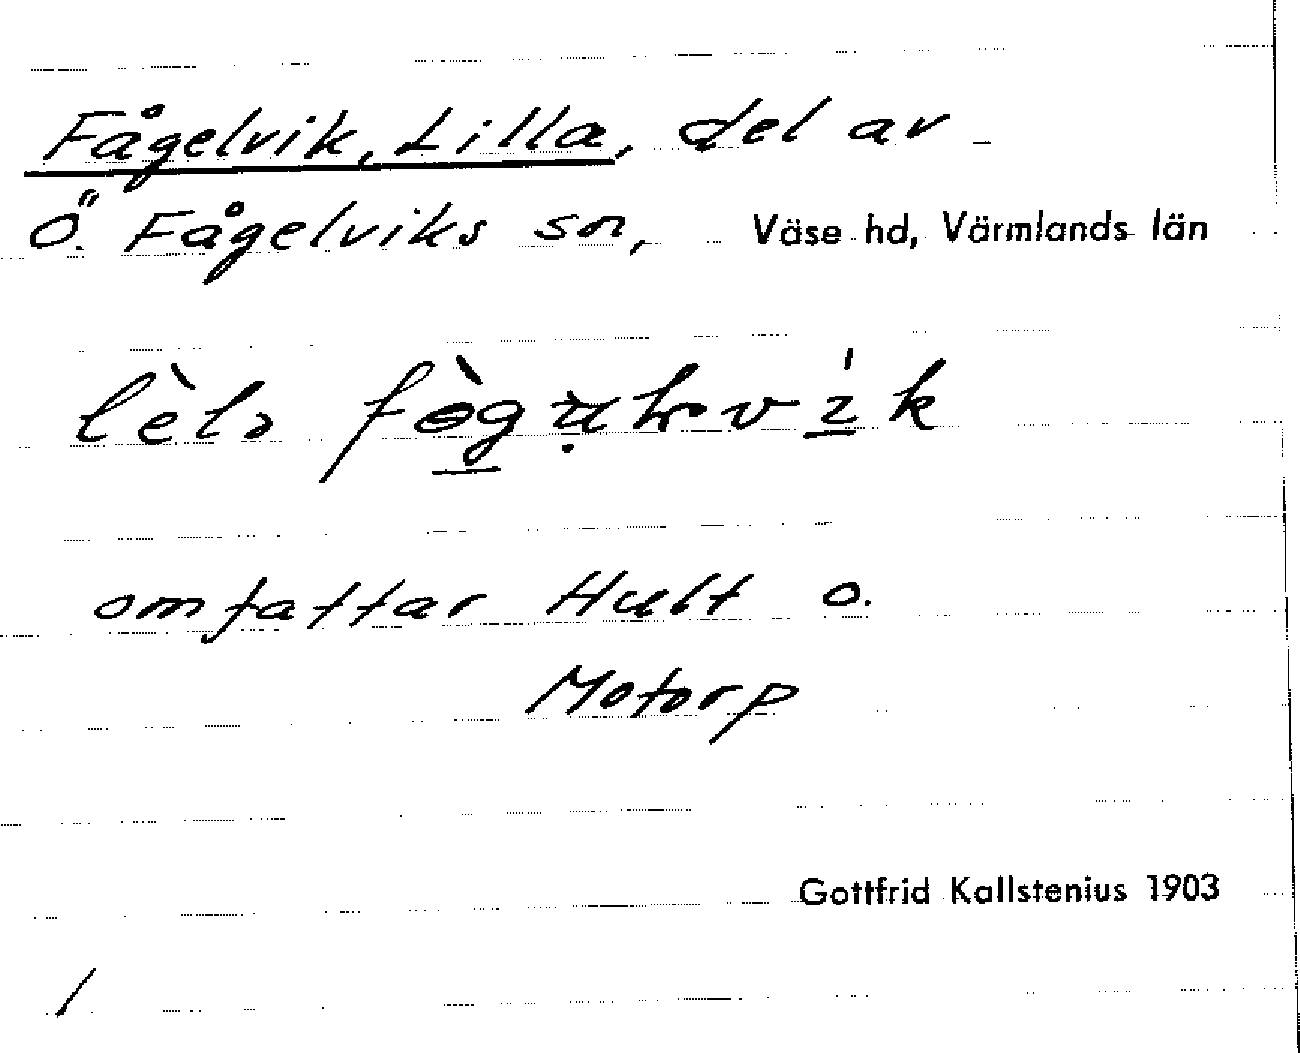 Fågelvik, Lilla, del av
Ö. Fågelviks sn, Väse hd, Värmlands län
omfattar Hult o.
Motorp
Gottfrid Kallstenius 1903
/